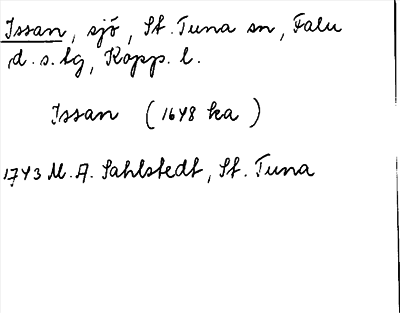 Issan, sjö, St. Tuna sn, Falu
d. s. lg, Kopp. l.
Issan (1648 ka)
1743 M. A. Sahlstedt, St. Tuna